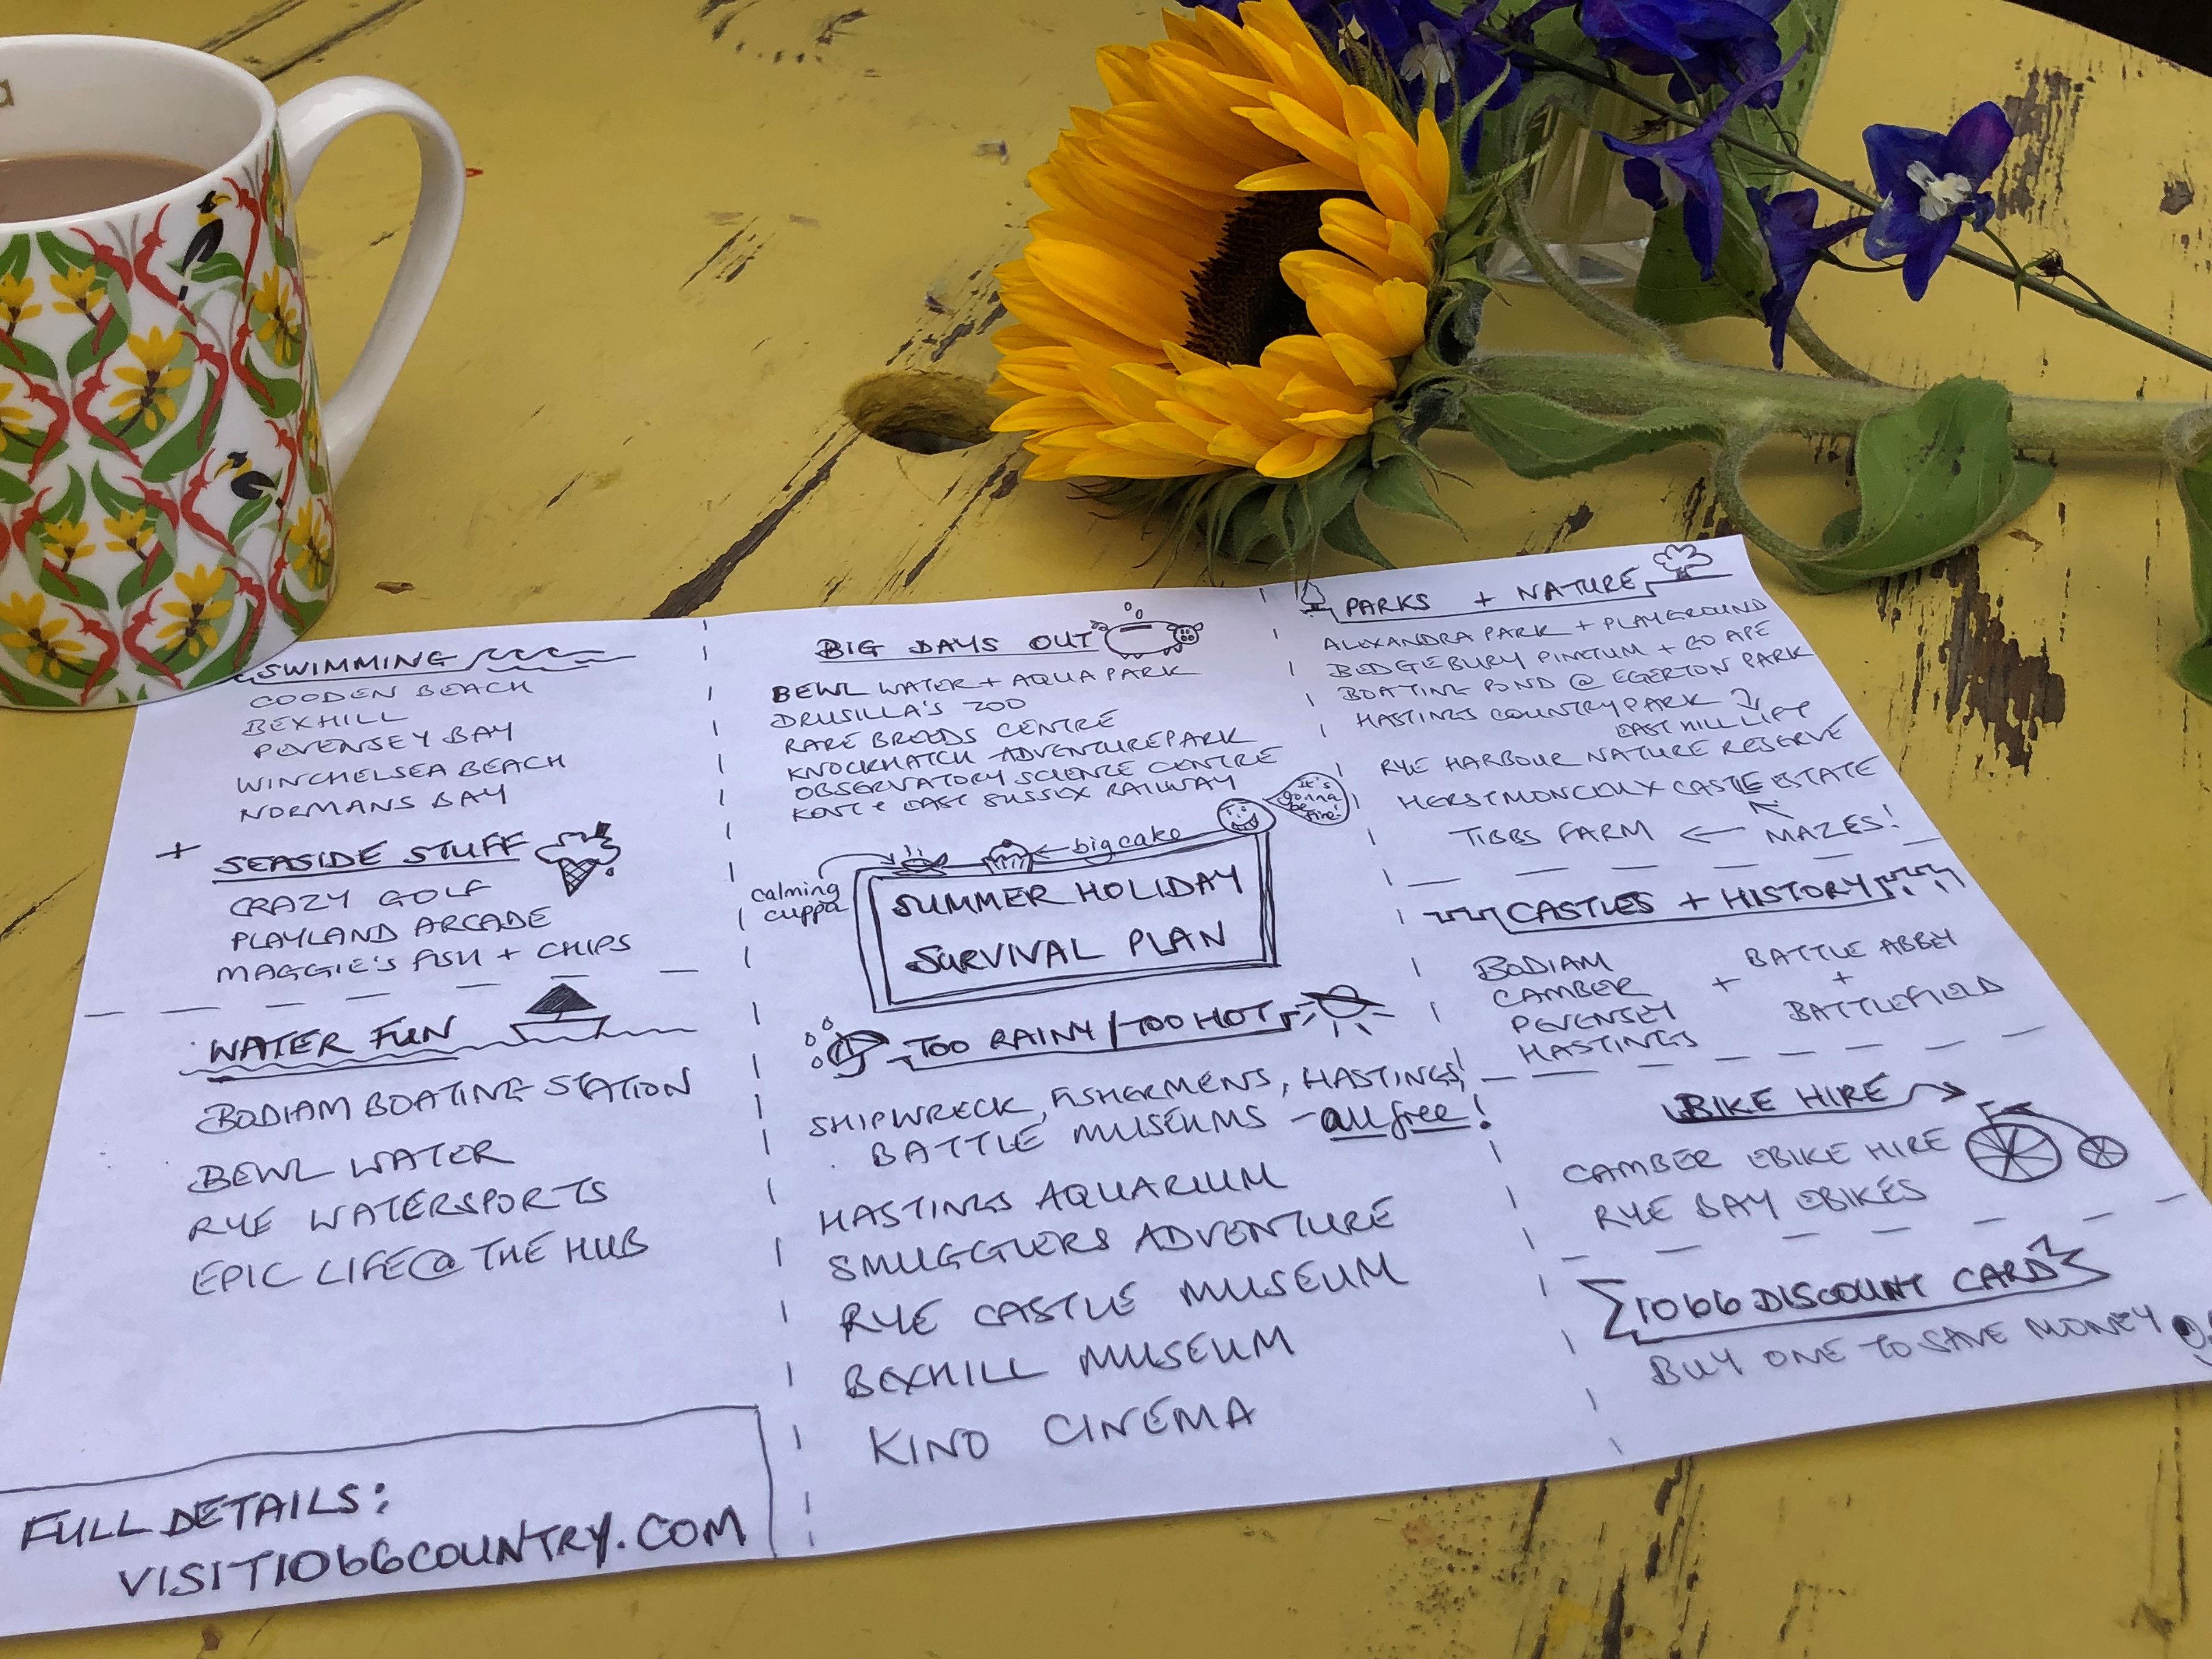 SWIMMING
COODEN BEACH
BEXHILL
PEVENSEY BAY
WINCHELSEA BEACH
NORMANS BAY
+ SEASIDE STUFF
CRAZY GOLF
PLAYLAND ARCADE
MAGGIE'S FISH + CHIPS
WATER FUN
BODIAM BOATING STATION
BEWL WATER
RYE WATERSPORTS
EPIC LIFE @ THE HUB
FULL DETAILS:
VISIT1066COUNTRY.COM
BIG DAYS OUT
BEWL WATER + AQUA PARK
DRUSILLA'S ZOO
RARE BREEDS CENTRE
KNOCKHATCH ADVENTURE PARK
OBSERVATORY SCIENCE CENTRE
KENT & EAST SUSSEX RAILWAY
It's
gonna
be
fine!
big cake
calming
cuppa
SUMMER HOLIDAY
SURVIVAL PLAN
TOO RAINY / TOO HOT
SHIPWRECK, FISHERMENS, HASTINGS,
BATTLE MUSEUMS - all free!
HASTINGS AQUARIUM
SMUGGLERS ADVENTURE
RYE CASTLE MUSEUM
BEXHILL MUSEUM
KINO CINEMA
PARKS + NATURE
ALEXANDRA PARK + PLAYGROUND
BEDGEBURY PINETUM + GO APE
BOATING POND @ EGERTON PARK
HASTINGS COUNTRY PARK
EAST HILL LIFT
RYE HARBOUR NATURE RESERVE
HERSTMONCEUX CASTLE ESTATE
TIBBS FARM ← MAZES!
CASTLES + HISTORY
BODIAM
CAMBER
PEVENSEY
HASTINGS
+ BATTLE ABBEY
+
BATTLEFIELD
BIKE HIRE
CAMBER EBIKE HIRE
RYE BAY EBIKES
1066 DISCOUNT CARD
BUY ONE TO SAVE MONEY